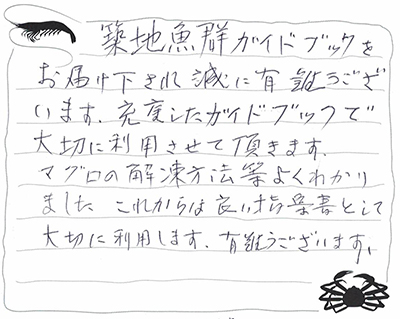 築地魚群ガイドブックを
お届け下され誠に有難うござ
います。充度したガイドブックで
大切に利用させて頂きます。
マグロの解凍方法等よくわかり
ました これからは良い指導書として
大切に利用します。有難うございます。